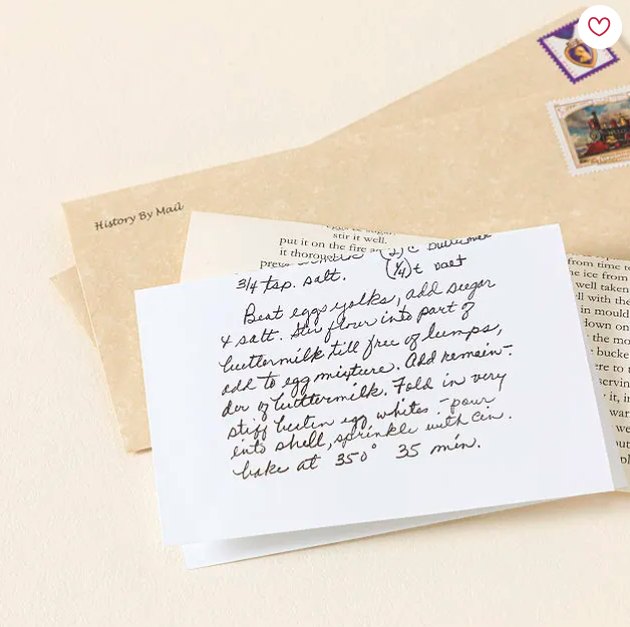 History By Mail
stir it well.
put it on the fire
it thoroughly
3/4 tsp. salt. (1/4) t salt
Beat eggs yolks, add sugar
& salt. Stir flour into part of
buttermilk till free of lumps,
add to egg mixture. Add remain-
der of buttermilk. Fold in very
stiff beaten egg whites - pour
into shell, sprinkle with cin.
bake at 350° 35 min.
from time to
he ice from
well taken
ll with the
in mould
down on
the mo
bucke
re to
servin
it, in
war
we
put
pl